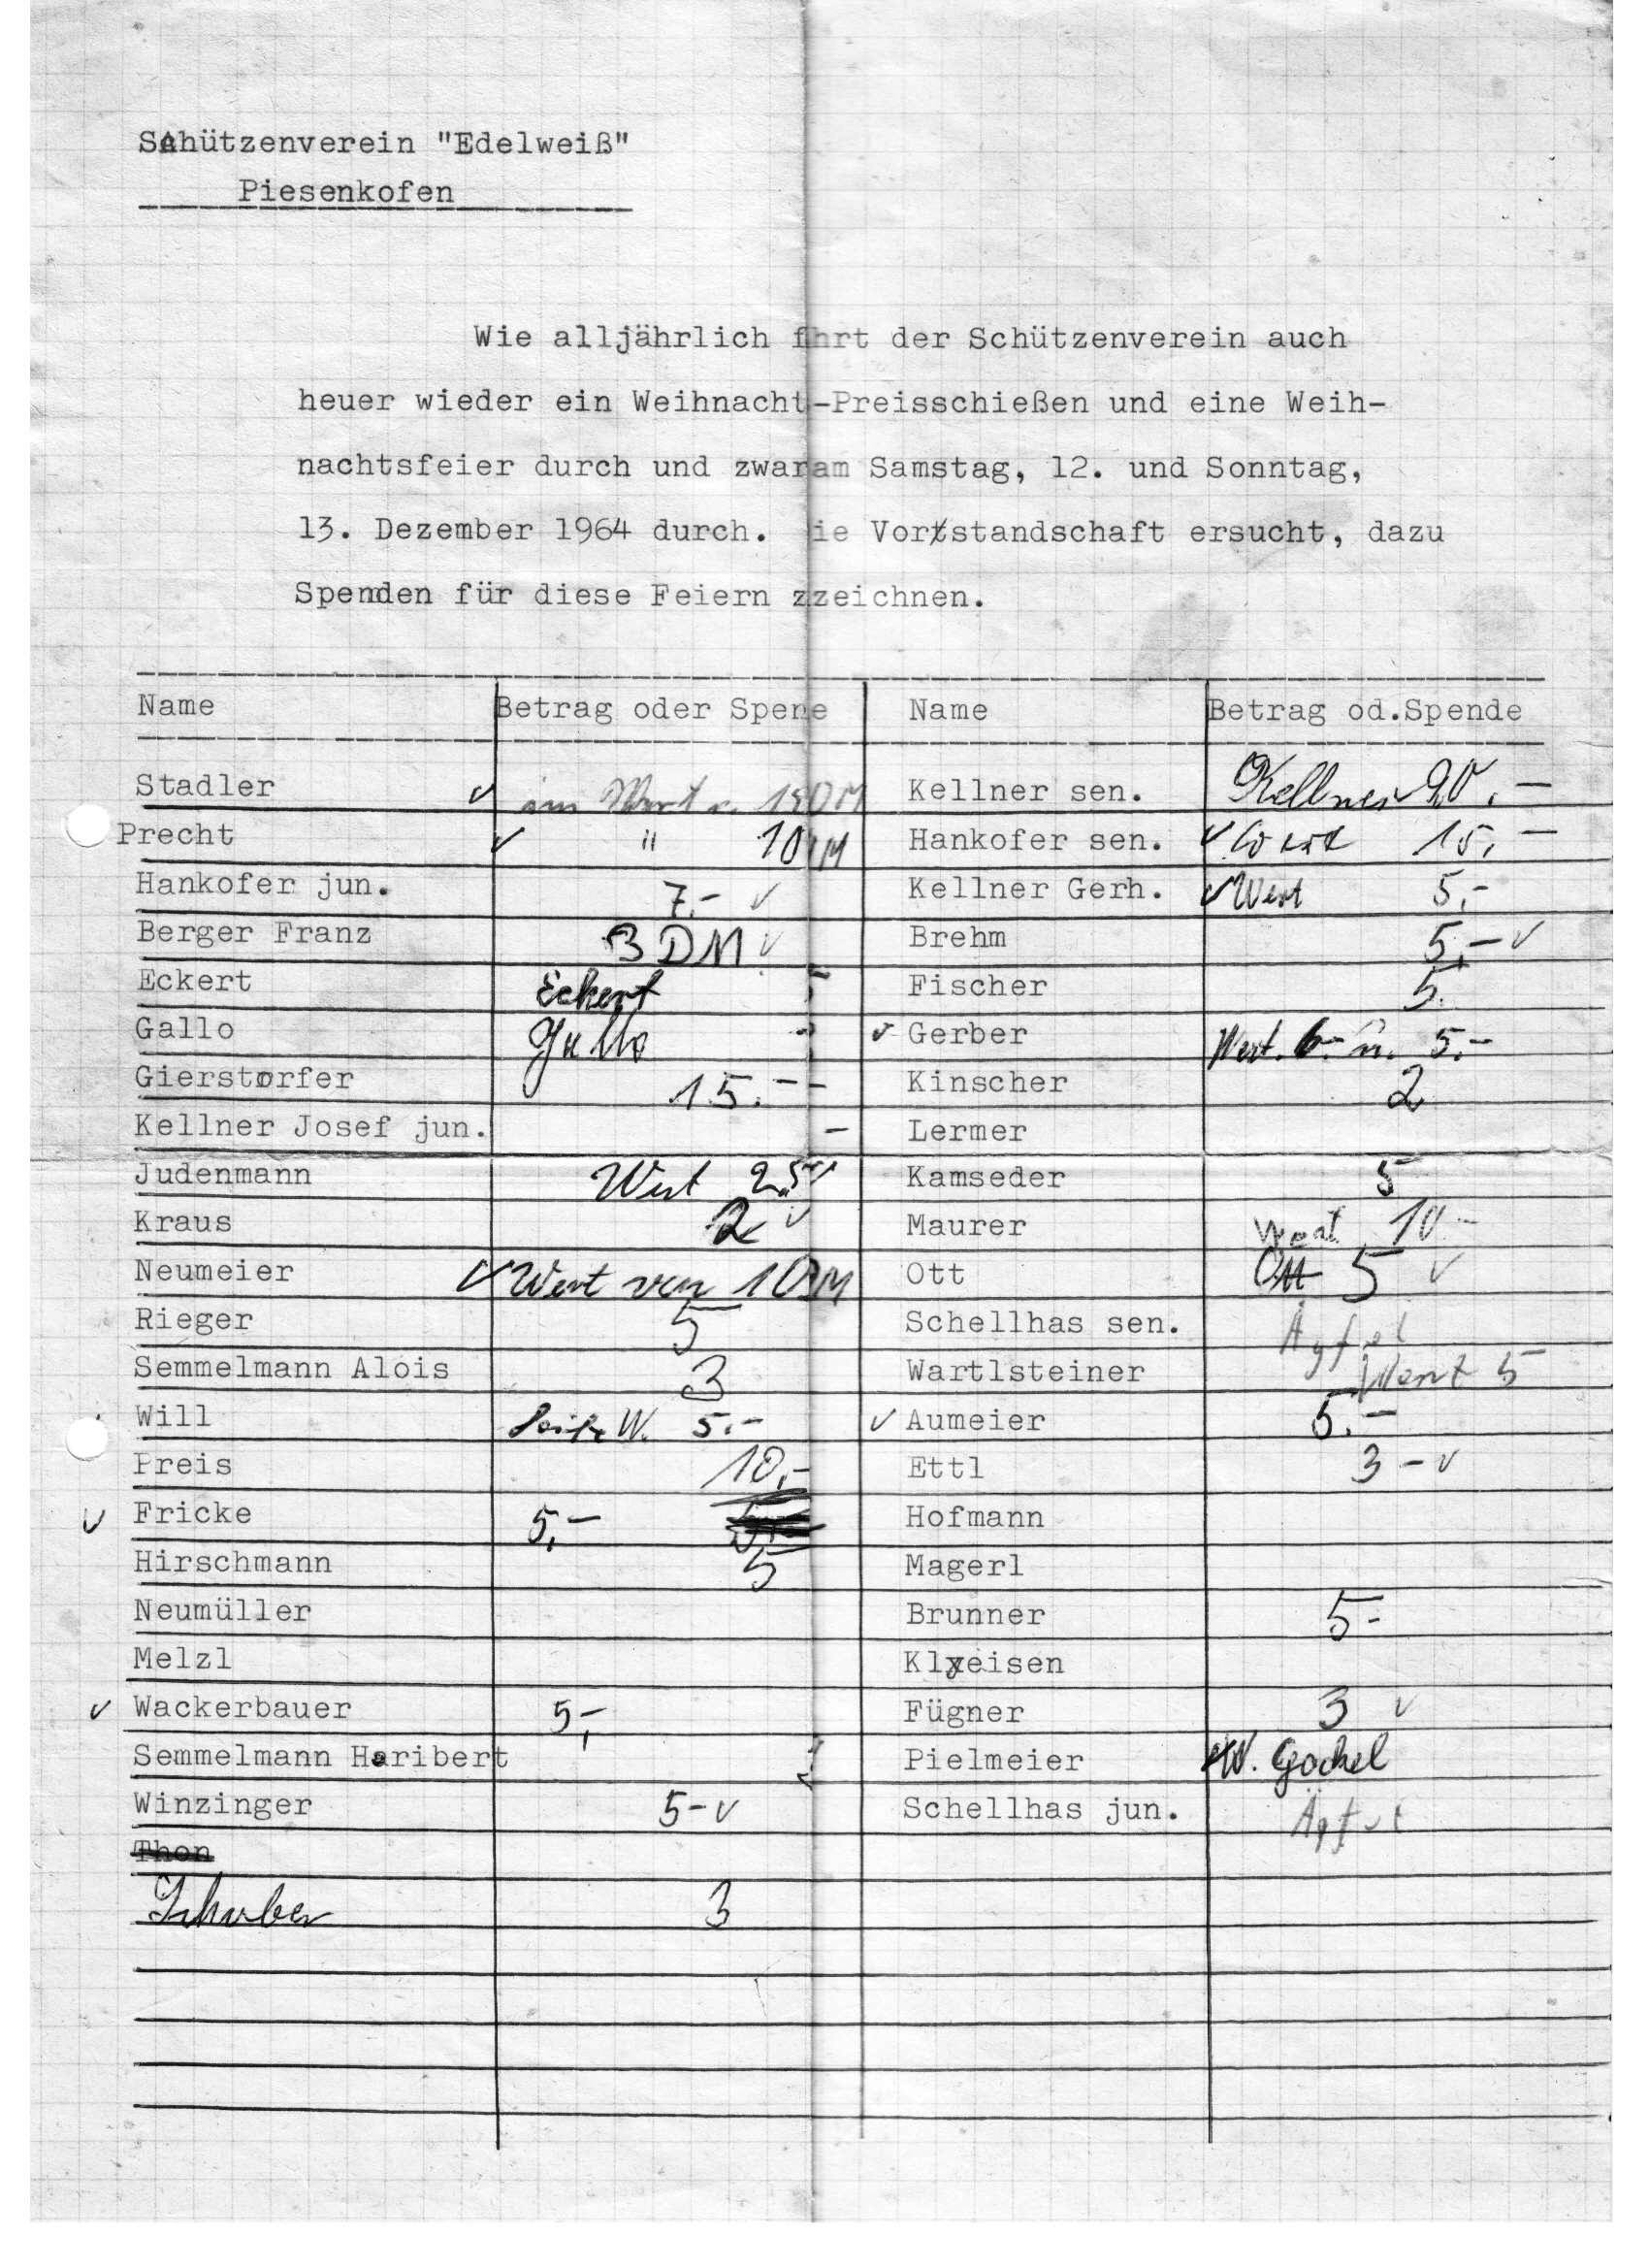 Schützenverein "Edelweiß"
Piesenkofen
Wie alljährlich fhrt der Schützenverein auch
heuer wieder ein Weihnacht-Preisschießen und eine Weih-
nachtsfeier durch und zwar am Samstag, 12. und Sonntag,
13. Dezember 1964 durch. ie Vorstandschaft ersucht, dazu
Spenden für diese Feiern z zeichnen.
Name Betrag oder Spene Name Betrag od.Spende
Stadler ✓ im Wert v. Kellner sen. Kellner 20.—
Precht ✓ " 10 DM Hankofer sen. ✓ Wert 15,—
Hankofer jun. 7.- ✓ Kellner Gerh. ✓ Wert 5,-
Berger Franz 3 DM ✓ Brehm 5,— ✓
Eckert Eckert 5 Fischer 5.
Gallo Gallo ✓ Gerber Wert. 5.-
Gierstorfer 15.-- Kinscher 2
Kellner Josef jun. — Lermer
Judenmann Wert 2,5 Kamseder 5
Kraus 2 ✓ Maurer Wert 10.-
Neumeier ✓ Wert von 10 DM Ott Ott 5 ✓
Rieger 5 Schellhas sen. Äpfel
Semmelmann Alois 3 Wartlsteiner Wert 5
Will W. 5.- ✓ Aumeier 5.-
Preis 10,- Ettl 3 - ✓
✓ Fricke 5,- Hofmann
Hirschmann 5 Magerl
Neumüller Brunner 5-
Melzl Klyeisen
✓ Wackerbauer 5,- Fügner 3 ✓
Semmelmann Heribert Pielmeier W. Gockel
Winzinger 5- ✓ Schellhas jun. Äpfel
Thon
Schuber 3